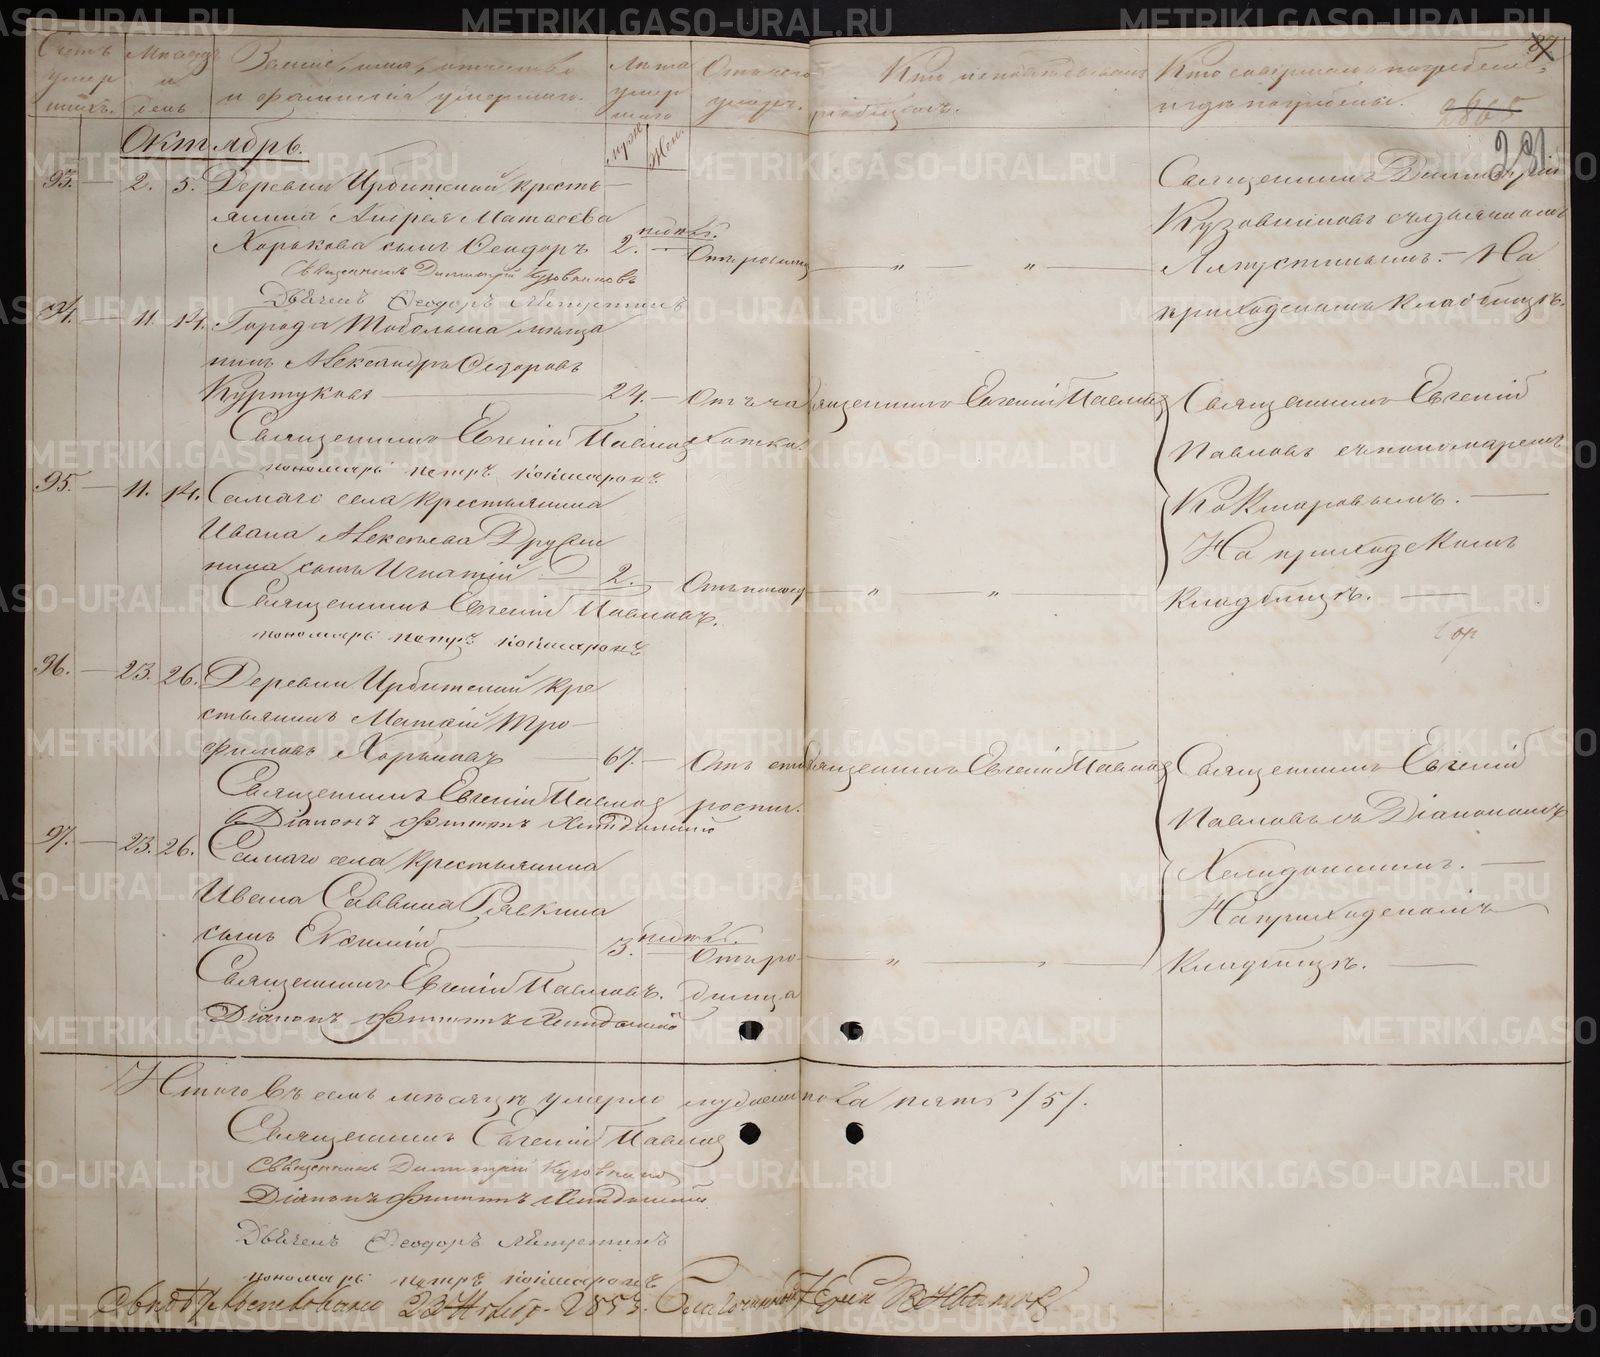 Счетъ умершихъ.
Месяцъ и день
Званіе, имя, отчество и фамилія умершаго.
Лета умершаго
Отъ чего умеръ.
Кто исповедывалъ и пріобщалъ.
Кто совершалъ погребеніе и где погребены.
87
2865
231
Октябрь.
муж.
Жен.
93. — 2. 5. Деревни Ирбитской кресть-
янина Андрея Матвеева
Хорькова сынъ Ѳеодоръ 2. недель. Отъ родимца — „ „ —
Священникъ Димитрій Кузовниковъ съ дьячкомъ
Ляпустинымъ. — На
приходскомъ кладбище.
Священникъ Димитрій Кузовниковъ
Дьячекъ Ѳеодоръ Ляпустинъ
94. — 11. 14. Города Тобольска меща
нинъ Александръ Ѳедоровъ
Куртуковъ — 24. — Отъ чахотки. Священникъ Евгеній Павловъ
Священникъ Евгеній
Павловъ съ пономаремъ
Кокшаровымъ. —
На приходскомъ
кладбище. —
Священникъ Евгеній Павловъ
пономарь петръ кокшаровъ
95. — 11. 14. Самаго села крестьянина
Ивана Алексеева Дружи
нина сынъ Игнатій — 2. — Отъ поноса — „ „ —
Священникъ Евгеній Павловъ.
пономарь петръ кокшаровъ
96. — 23. 26. Деревни Ирбитской кре
стьянинъ Матвій Тро-
фимовъ Хорьковъ — 67. — Отъ старости. Священникъ Евгеній Павловъ
Священникъ Евгеній
Павловъ съ Діакономъ
Хелидонскимъ. —
На приходскомъ
Кладбище. —
Священникъ Евгеній Павловъ
Діаконъ Филиппъ Хелидонскій
97. — 23. 26. Самаго села крестьянина
Ивана Саввина Рявкина
сынъ — 3. недель. Отъ родимца — „ —
Священникъ Евгеній Павловъ.
Діаконъ Филиппъ Хелидонскій
Итого въ семъ месяце умерло мужеска пола пять /5/.
Священникъ Евгеній Павловъ
Священникъ Димитрій Кузовниковъ
Діаконъ Филиппъ Хелидонскій
Дьячекъ Ѳеодоръ Ляпустинъ
пономарь петръ кокшаровъ
Свидетельствовано 23 Ноября 1853. Благочинный Іерей
METRIKI.GASO-URAL.RU